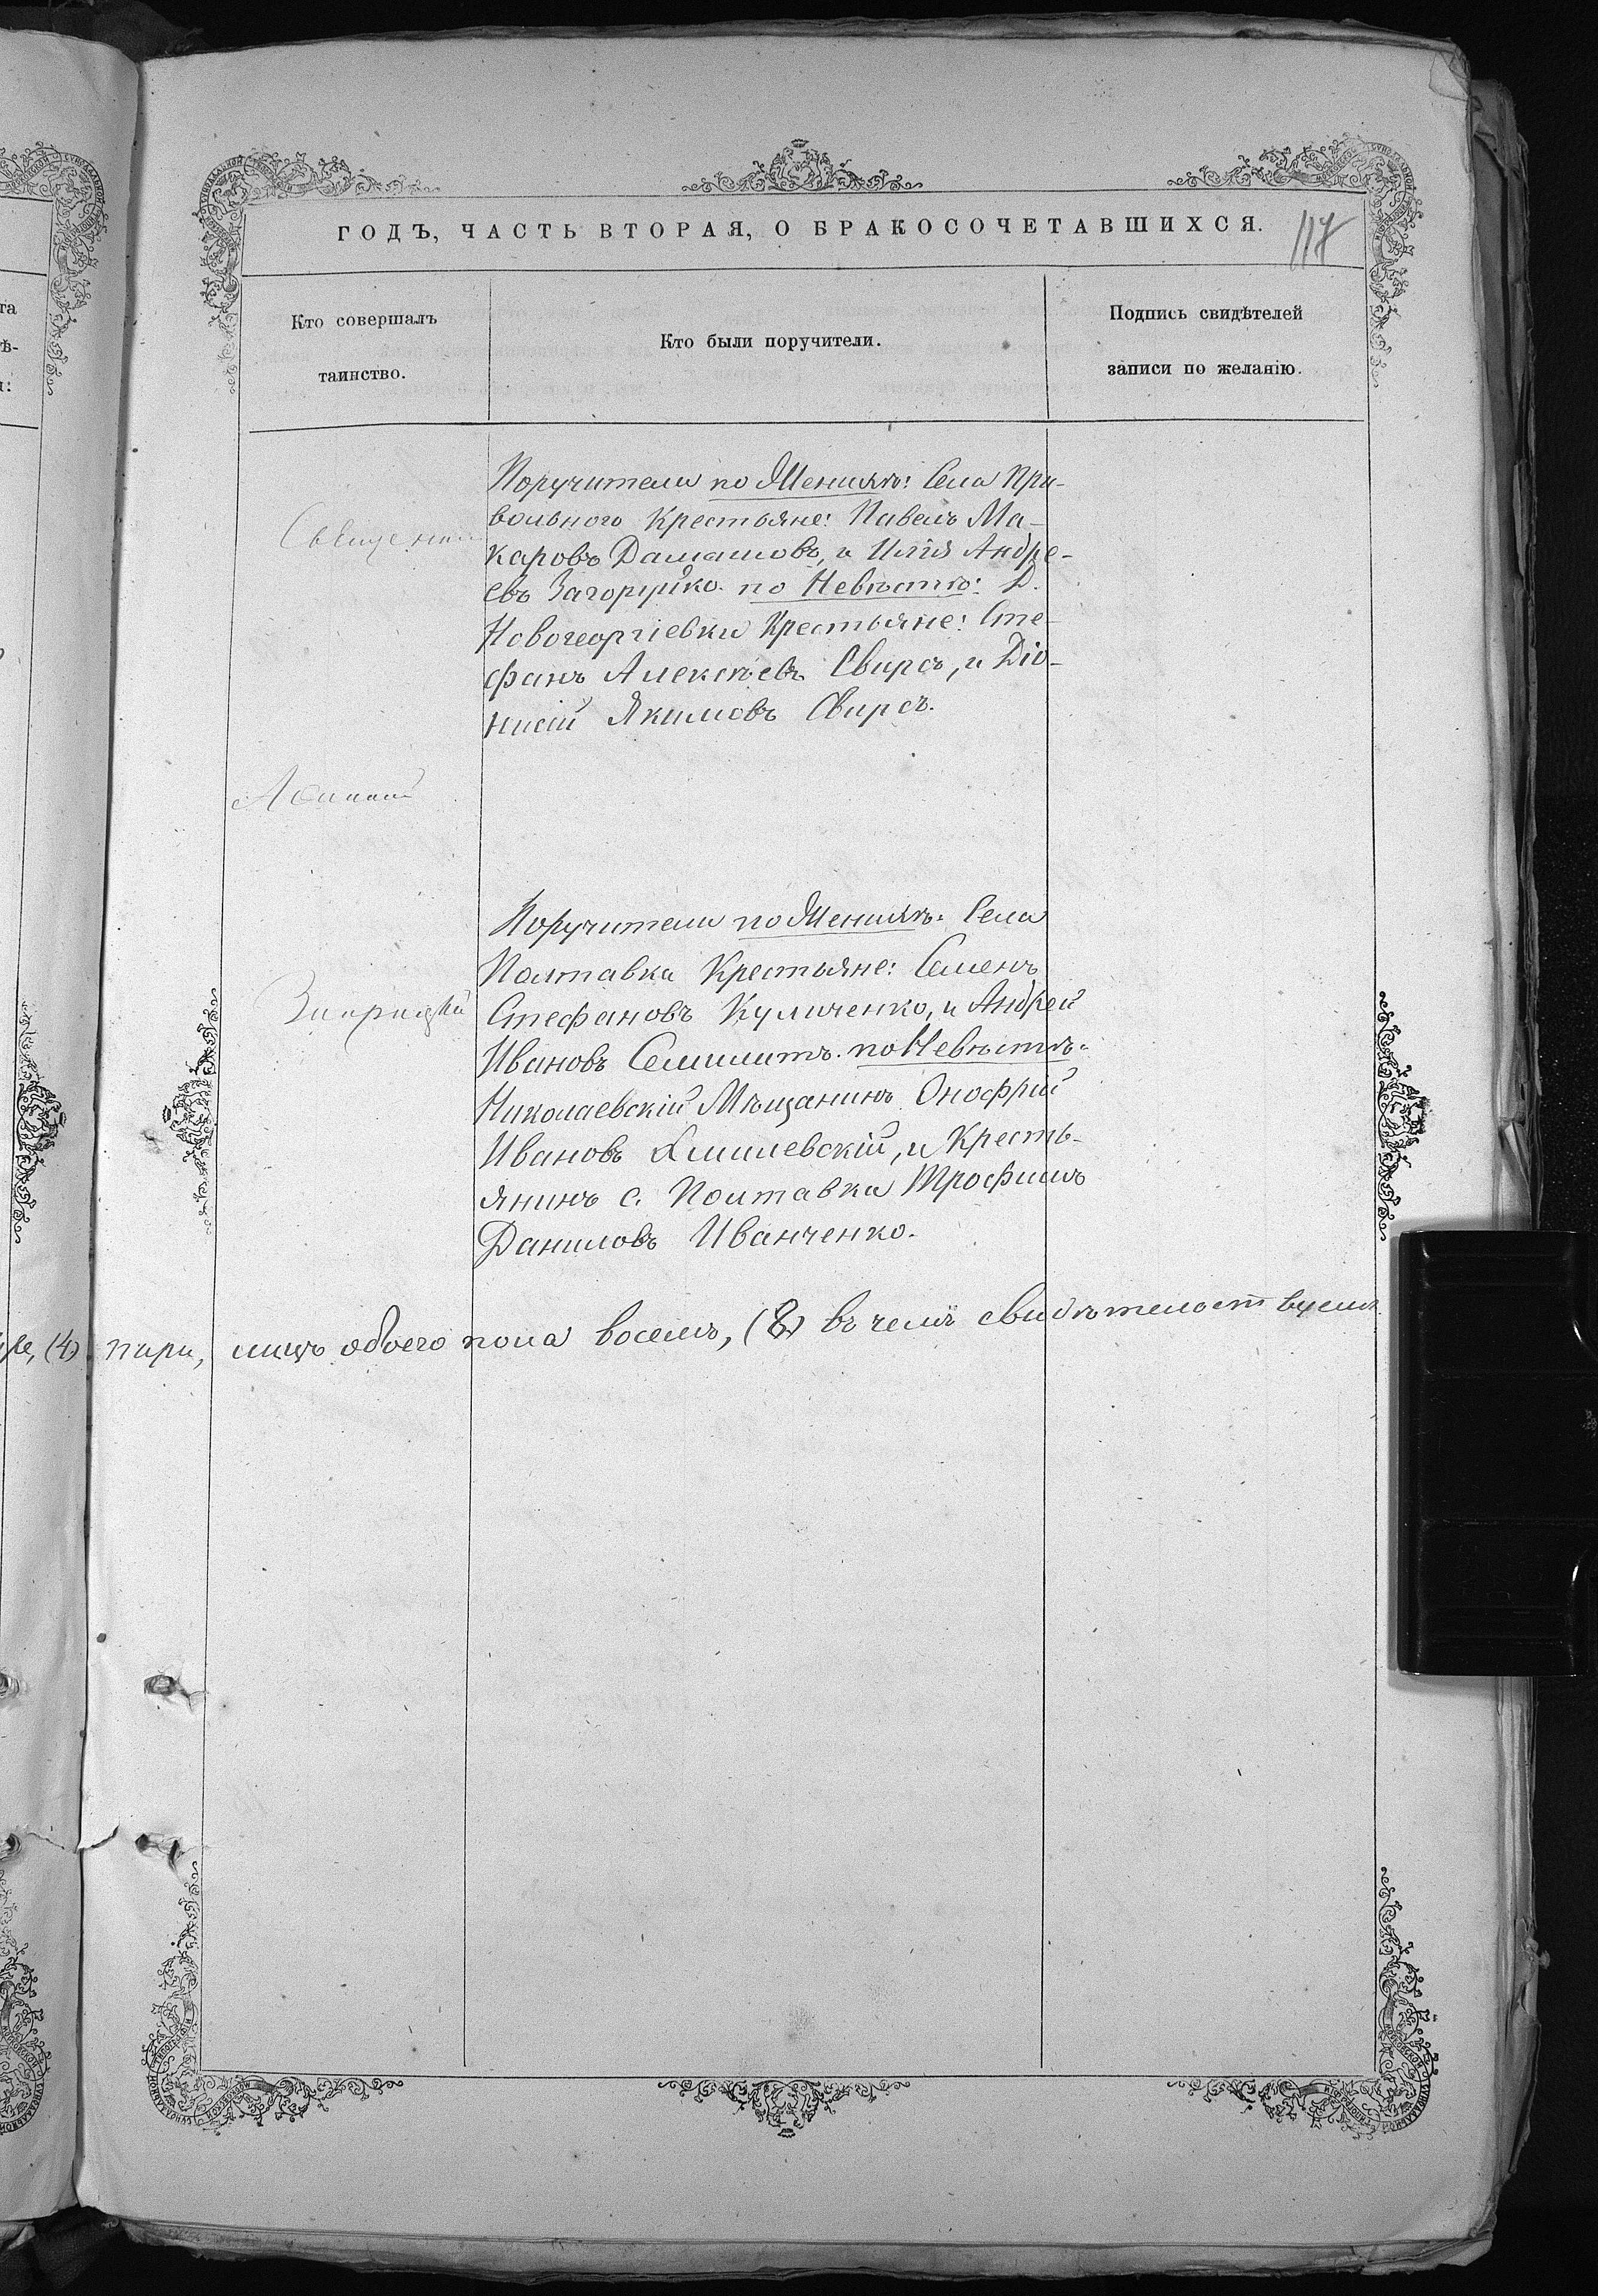 ГОДЪ, ЧАСТЬ ВТОРАЯ, О БРАКОСОЧЕТАВШИХСЯ. 117
Кто совершалъ
таинство.
Кто были поручители.
Подпись свидѣтелей
записи по желанію.
Поручители по Женихѣ: Села При-
вольного Крестьяне: Павелъ Ма-
Священник
каровъ Далматовъ, и Илія Андре-
евъ Загоруйко. по Невѣстѣ: Д.
Новогеоргіевки Крестьяне: Сте-
фанъ Алексѣевъ Свирсъ, и Діо-
нисій Якимовъ Свирсъ.
Поручители по Женихѣ: Села
Полтавка Крестьяне: Семенъ
Стефановъ Куличенко, и Андрей
Ивановъ по Невѣстѣ:
Николаевскій Мѣщанинъ Онофрій
Ивановъ Хмилевскій, и Кресть-
янинъ с. Полтавка Трофимъ
Даниловъ Иванченко.
(4) пари, лицъ обоего пола восемь, (8) въ чемъ